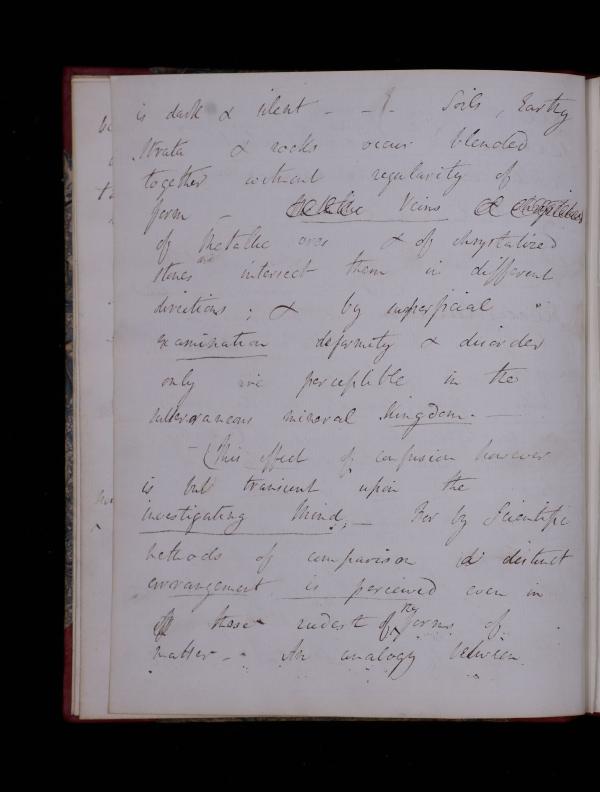 is dark & silent - - - Soils, Earthy
Strata & rocks occur blended
together without regularity of
form - Metallic Veins &
of Metallic ores & of chrystalized
stones intersect them in different
directions; & by superficial
examination deformity & disorder
only are perceptible in the
subterraneous mineral Kingdom. -
- (This effect of confusion however
is but transient upon the
investigating Mind; - For by Scientific
methods of comparison a distinct
arrangement is perceived even in
these rudest of the forms of
matter - - An analogy between